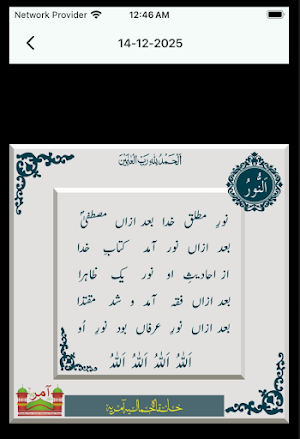 Network Provider 12:46 AM
14-12-2025
اَلْحَمْدُ لِلّٰهِ رَبِّ الْعٰلَمِيْن
اَلنُّورُ
نورِ مطلق خدا بعد ازاں مصطفیٰؐ
بعد ازاں نور آمد کتابِ خدا
از احادیثِ او نور یک ظاہرا
بعد ازاں فقہ آمد و شد مقتدا
بعد ازاں نورِ عرفاں بود نورِ اُو
اَللّٰہُ اَللّٰہُ اَللّٰہُ اَللّٰہُ
آمر